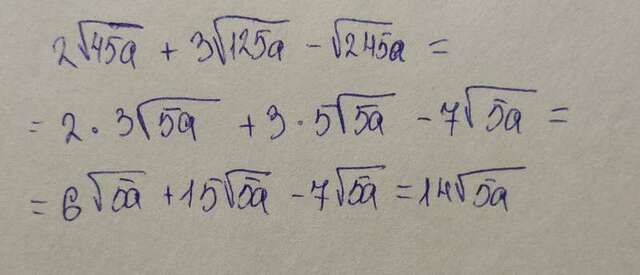 2√45a + 3√125a - √245a =
= 2 · 3√5a + 3 · 5√5a - 7√5a =
= 6√5a + 15√5a - 7√5a = 14√5a